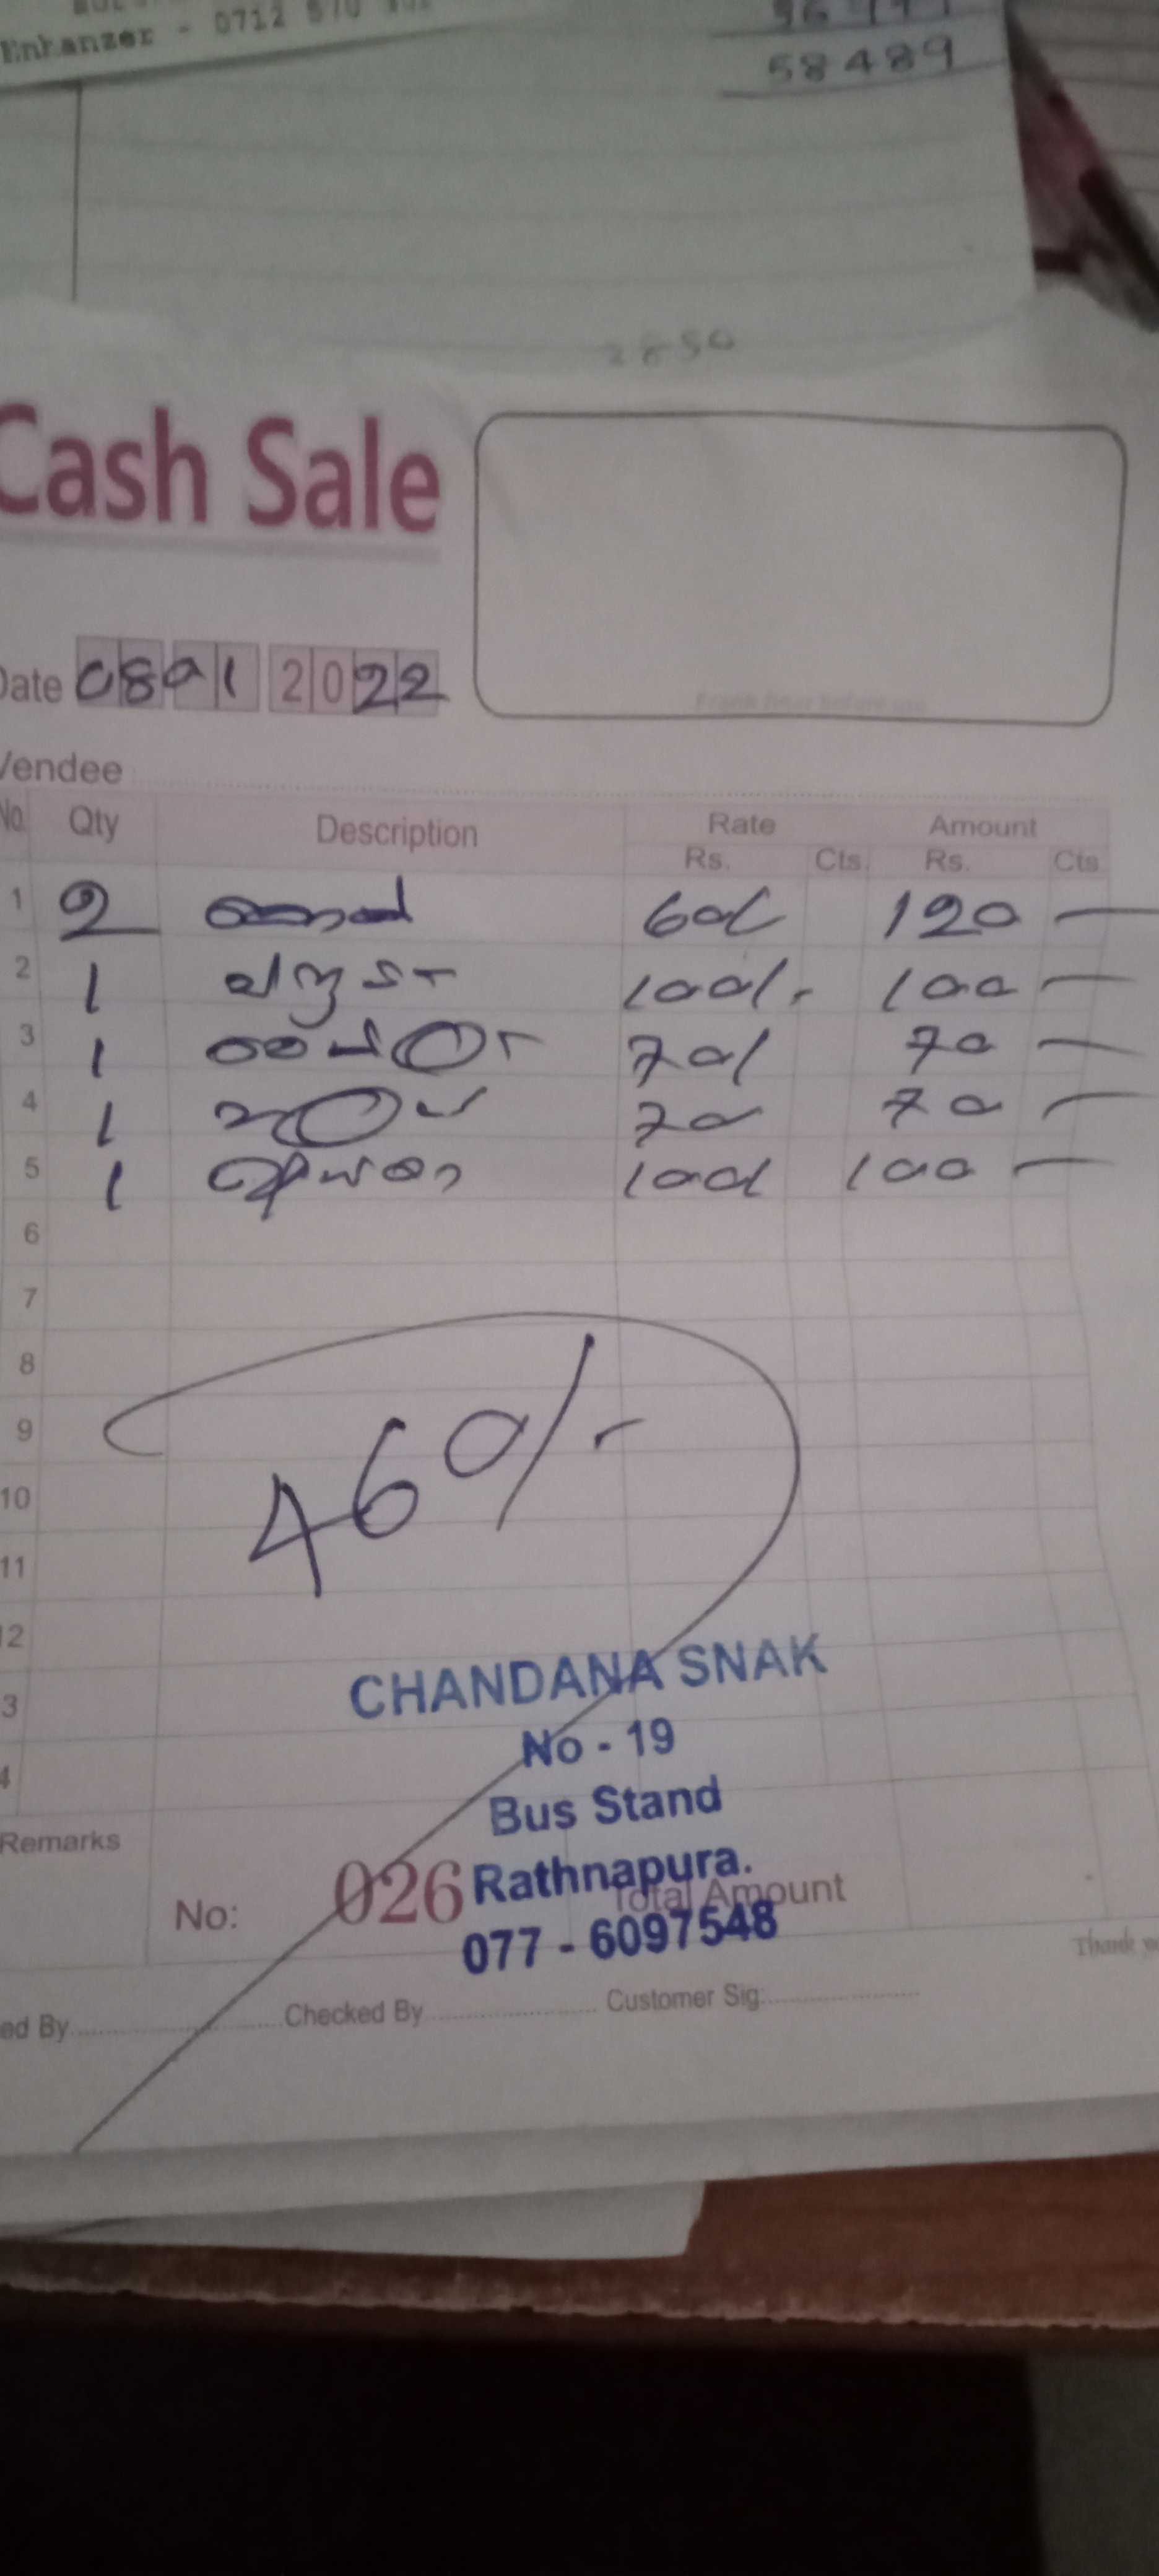 Enhanzer - 0712 570
58489
2850
Cash Sale
Date 08 01 2022
Vendee
No. Qty Description Rate Amount
Rs. Cts. Rs. Cts.
1 2 60/ 120 —
2 1 100/. 100 —
3 1 70/ 70 —
4 1 70 70 —
5 1 100/ 100 —
6
7
8
9
10
11
12
3
4
460/-
CHANDANA SNAK
No - 19
Bus Stand
Rathnapura.
077 - 6097548
Remarks
No: 026 Total Amount
Thank
ed By Checked By Customer Sig: